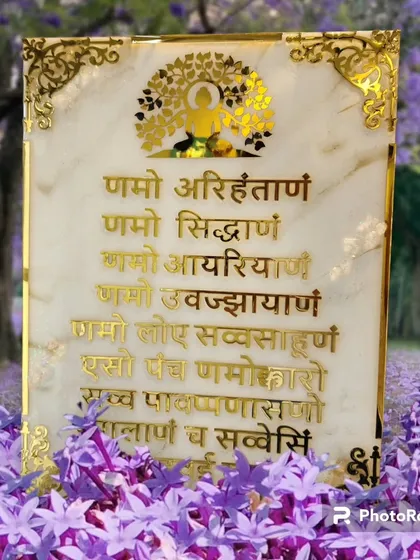 णमो अरिहंताणं
णमो सिद्धाणं
णमो आयरियाणं
णमो उवज्झायाणं
णमो लोए सव्वसाहूणं
एसो पंच णमोक्कारो
सव्व पावप्पणासणो
च सव्वेसिं